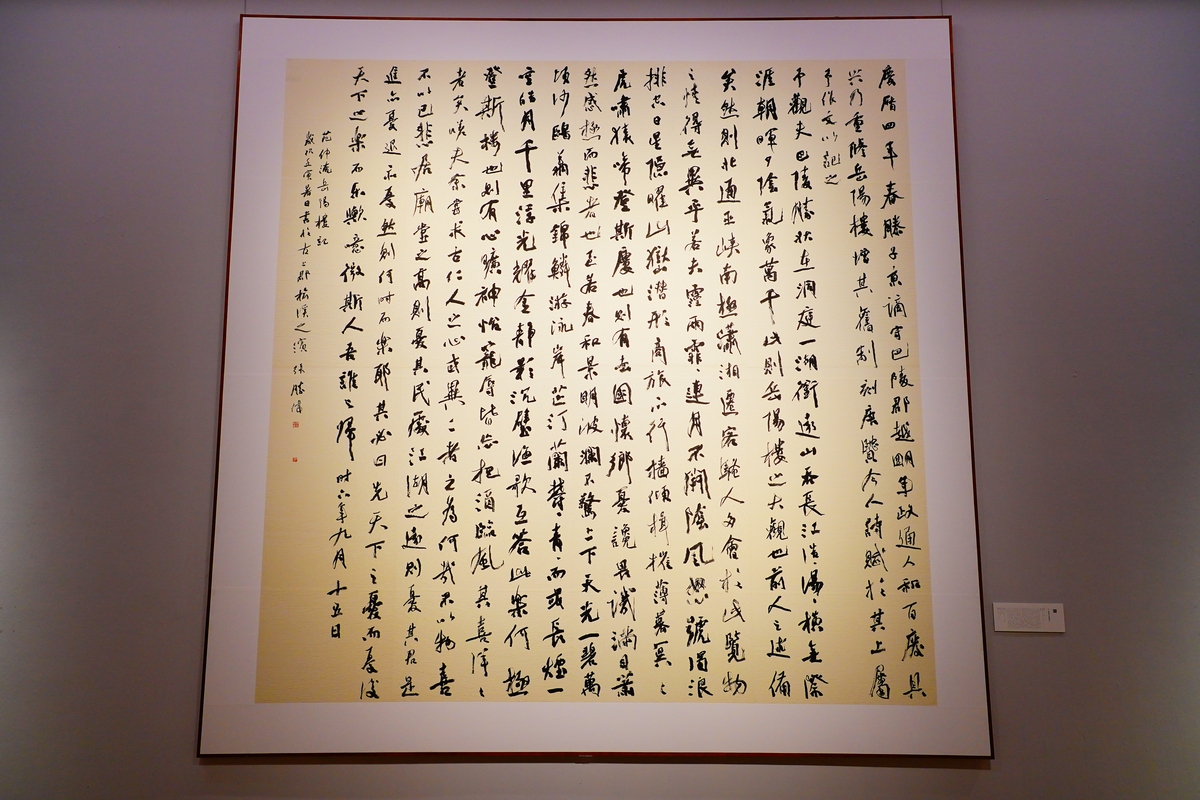 慶曆四年春滕子京謫守巴陵郡越明年政通人和百廢具
兴乃重修岳陽樓增其舊制刻唐賢今人詩賦於其上屬
予作文以記之
予觀夫巴陵勝狀在洞庭一湖銜遠山吞長江浩浩湯湯橫無際
涯朝暉夕陰氣象萬千此則岳陽樓之大觀也前人之述備
矣然則北通巫峽南極瀟湘遷客騷人多會於此覽物
之情得無異乎若夫霪雨霏霏連月不開陰風怒號濁浪
排空日星隱曜山嶽潛形商旅不行檣傾楫摧薄暮冥冥
虎嘯猿啼登斯樓也則有去國懷鄉憂讒畏譏滿目蕭
然感極而悲者也至若春和景明波瀾不驚上下天光一碧萬
頃沙鷗翔集錦鱗游泳岸芷汀蘭鬱鬱青青而或長煙一
空皓月千里浮光耀金靜影沉璧漁歌互答此樂何極
登斯樓也則有心曠神怡寵辱皆忘把酒臨風其喜洋洋
者矣嗟夫余嘗求古仁人之心或異二者之為何哉不以物喜
不以己悲居廟堂之高則憂其民處江湖之遠則憂其君是
進亦憂退亦憂然則何時而樂耶其必曰先天下之憂而憂後
天下之樂而樂歟噫微斯人吾誰與歸時六年九月十五日
范仲淹岳陽樓記
歲次壬寅暑日書於古上郡榆溪之濱張勝偉